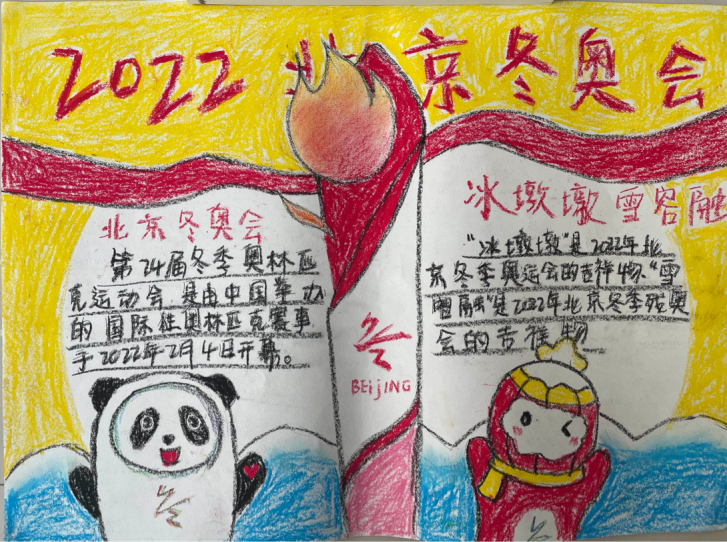 2022北京冬奥会
北京冬奥会
第24届冬季奥林匹
克运动会,是由中国举办
的国际性奥林匹克赛事
于2022年2月4日开幕。
冰墩墩雪容融
"冰墩墩"是2022年北
京冬季奥运会的吉祥物."雪
融"是2022年北京冬季残奥
会的吉祥物
BEijiNG